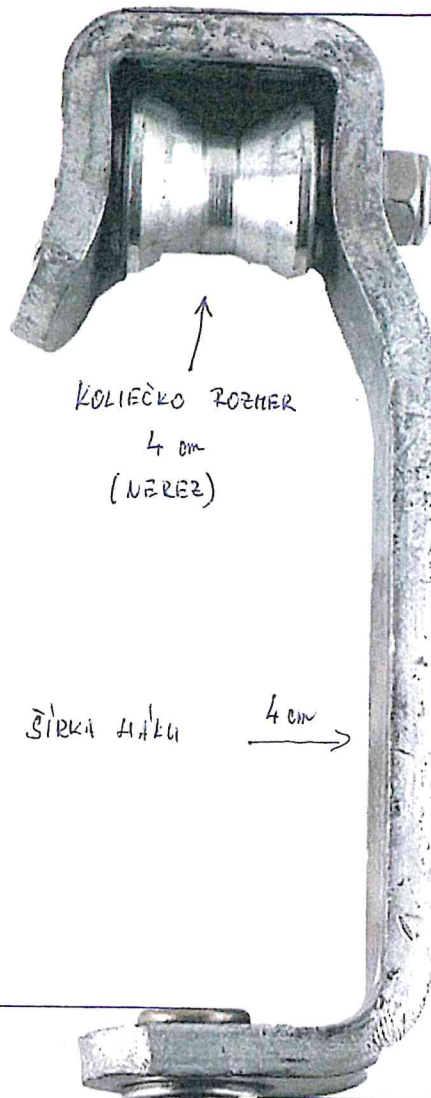 KOLIEČKO ROZMER
4 cm
(NEREZ)
ŠÍRKA HÁKU 4 cm